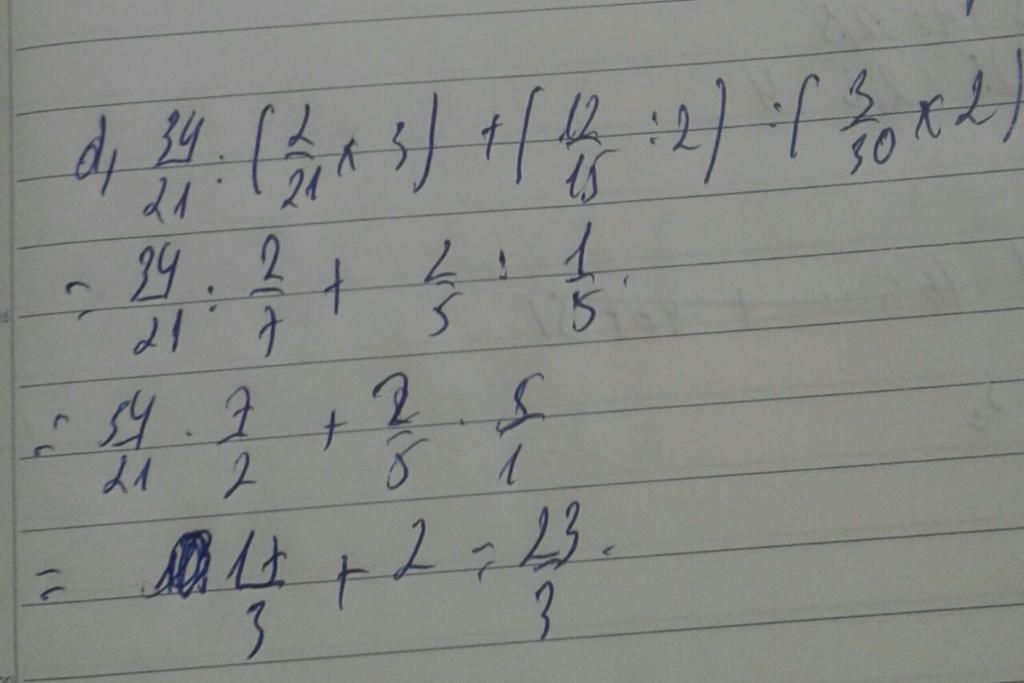 d, 34/21 : (2/21 x 3) + (12/15 : 2) : (3/30 x 2)
= 34/21 : 2/7 + 2/5 : 1/5
= 34/21 . 7/2 + 2/5 . 5/1
= 17/3 + 2 = 23/3.